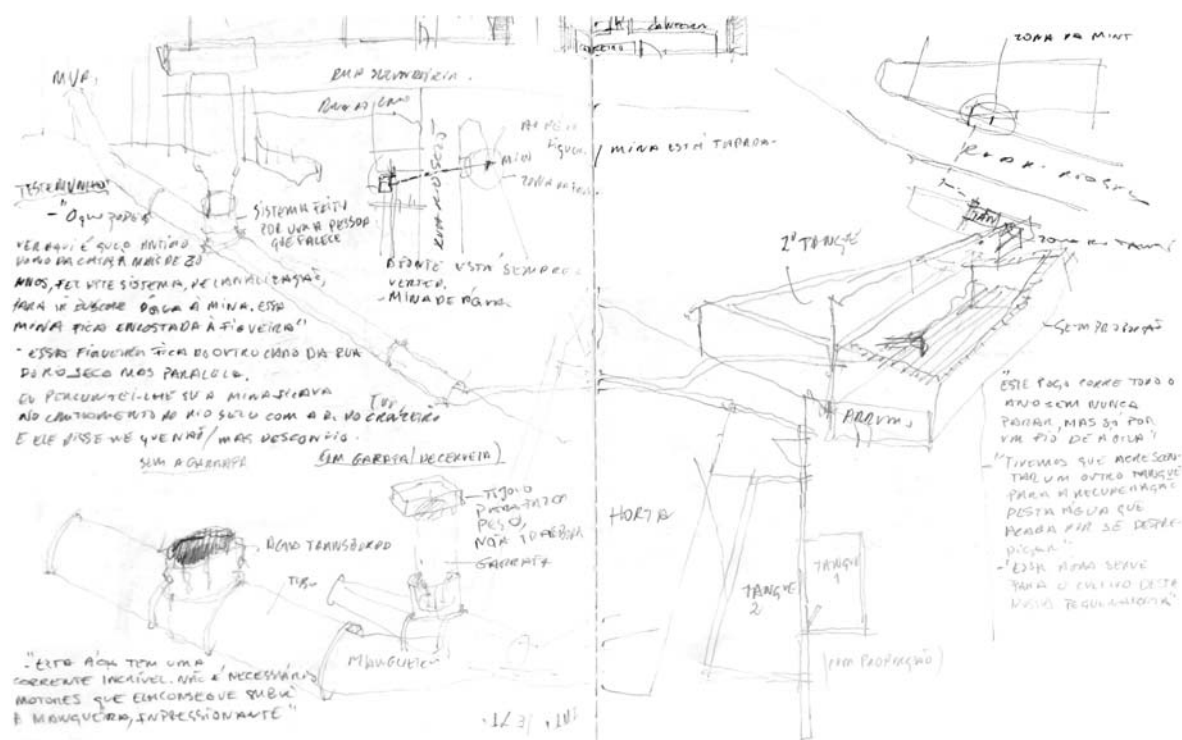 RUA SECUNDÁRIA.
MUR.
RUA RIO SECO
MINA
TESTEMUNHO
- "O que podes
VER AQUI É QUE O ANTIGO
DONO DA CASA, A MAIS DE 30
ANOS, FEZ ESTE SISTEMA, DE CANALIZAÇÃO,
PARA IR BUSCAR ÁGUA À MINA. ESSA
MINA FICA ENCOSTADA À FIGUEIRA"
- ESSA FIGUEIRA FICA DO OUTRO LADO DA RUA
DO RIO SECO MAS PARALELA.
EU PERGUNTEI-LHE SE A MINA FICAVA
NO CRUZAMENTO DO RIO SECO COM A R. DO CRUZEIRO
E ELE DISSE-ME QUE NÃO/MAS DESCONFIO.
SISTEMA FEITO
POR UMA PESSOA
QUE FALECE
A FONTE ESTÁ SEMPRE A
VERTER.
- MINA DE ÁGUA
SEM A GARRAFA
(EM GARRAFA/DE CERVEJA)
TUBO
- TIJOLO
PARA FAZER
PESO,
NÃO TRANSBORDA
GARRAFA
ÁGUA TRANSBORDO
TUBO
MANGUEIRA
- "ESTA ÁGUA TEM UMA
CORRENTE INCRÍVEL. NÃO É NECESSÁRIO
MOTORES QUE ELA CONSEGUE SUBIR
A MANGUEIRA, IMPRESSIONANTE"
/ MINA ESTÁ TAPADA
ZONA DA MINA
RUA R. RIO SECO
ZONA DO TANQUE
2º TANQUE
SEM PROPORÇÃO
HORTA
TANQUE
2
TANQUE
1
(COM PROPORÇÃO)
"ESTE POÇO CORRE TODO O
ANO SEM NUNCA
PARAR, MAS SÓ POR
UM FIO DE ÁGUA"
- "TIVEMOS QUE ACRESCEN-
TAR UM OUTRO TANQUE
PARA A RECUPERAÇÃO
DESTA ÁGUA QUE
ACABA POR SE DESPER-
DIÇAR"
- "ESSA ÁGUA SERVE
PARA O CULTIVO DESTA
NOSSA PEQUENA HORTA"